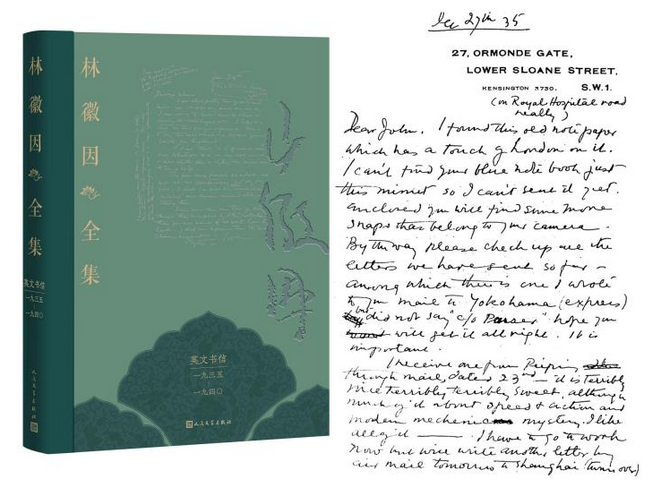 林徽因全集
英文书信
一九三五
一九四〇
林徽因全集
英文书信
一九三五
一九四〇
人民文学出版社
Dec 27th 35
27, ORMONDE GATE,
LOWER SLOANE STREET,
KENSINGTON 3730. S.W.1.
(on Royal Hospital road
really)
Dear John. I found this old note paper
which has a touch of London on it.
I can't find your blue note book just
this minute so I can't send it yet.
Enclosed you will find some more
snaps that belong to your camera.
By the way please check up all the
letters we have sent so far –
among which there is one I wrote
to you mail to Yokohama (express)
but did not say "c/o Purser" hope you
will get it all right. It is
important.
I receive one from Peiping
through mail, dated 23rd – it is terribly
nice terribly terribly sweet, although
much of it about speed & action and
modern mechanic mystery. I like
all of it — I have to go to work
now but will write another letter by
air mail tomorrow to Shanghai (turn over)